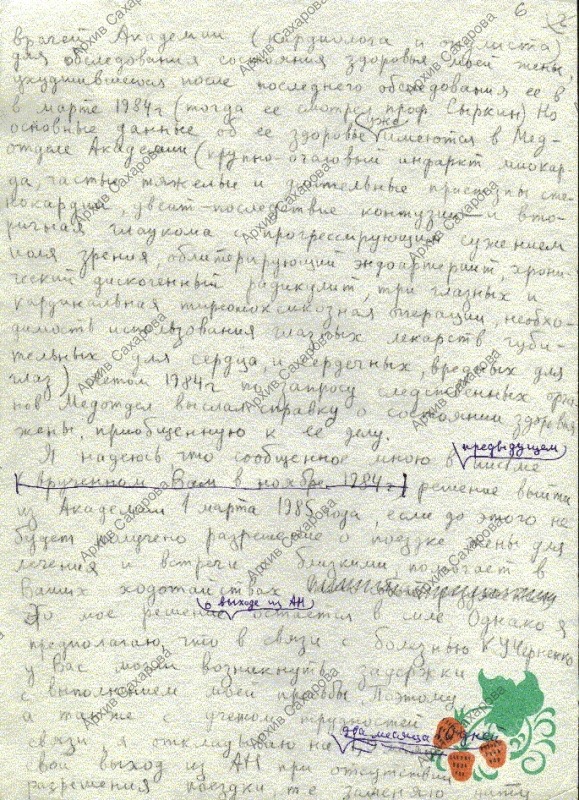 6
врачей Академии (кардиолога и окулиста)
для обследования состояния здоровья моей жены,
ухудшившегося после последнего обследования ее в
в марте 1984 г (тогда ее смотрел проф. Сыркин) Но
уже
основные данные об ее здоровье имеются в Мед-
отделе Академии (крупно-очаговый инфаркт миокар-
да, частые тяжелые и длительные приступы сте-
нокардии, увеит – последствие контузии – и вто-
ричная глаукома с прогрессирующим сужением
поля зрения, облитерирующий эндоартериит, хрони-
ческий дискогенный радикулит, три глазных и
кардинальная тиреотоксикозная операции, необхо-
димость использования глазных лекарств губи-
тельных для сердца, и сердечных, вредных для
глаз). Летом 1984 г по запросу следственных орга-
нов Медотдел выслал справку о состоянии здоровья
жены, приобщенную к ее делу.
предыдущем
Я надеюсь что сообщенное мною в письме
[врученном Вам в ноябре 1984 г.] решение выйти
из Академии 1 марта 1985 года, если до этого не
будет получено разрешение о поездке жены для
лечения и встречи с близкими, помогает в
Ваших ходатайствах
о выходе из АН
Это мое решение остается в силе Однако я
предполагаю, что в связи с болезнью К.У Черненко
у Вас могли возникнуть задержки
с выполнением моей просьбы Поэтому
а также с учетом трудностей
два месяца 10 дней
связи, я откладываю на
свой выход из АН при отсутствии
разрешения поездки, т.е заменяю датой
Архив Сахарова